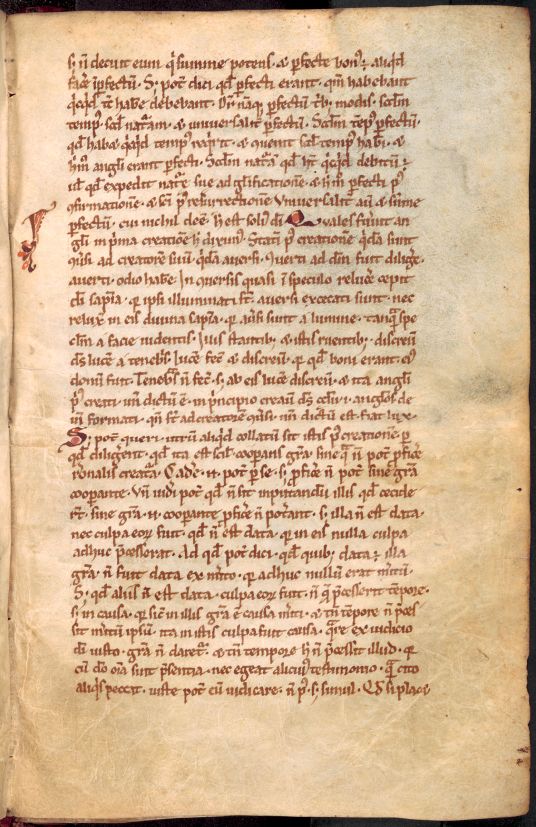 s; n̄ decuit eum q̄ sum̄e potens ⁊ p̄fecte bon⁹ ÷ aliq̄d
fac̄e īp̄fectū. S; pot̄ dici qd̄ p̄fecti erant. qm̄ habebant
q̄cq̄d tc̄ hab̄e debebant. p̄fectū tb; modis. scd̄m
temp⁹. scd̄ nat̄am. ⁊ universalit̄ p̄fectū. Scd̄m tēp⁹ p̄fectū.
qd̄ hab& q̄cq̄d temp⁹ req̄rit. ⁊ ꝯuenit scd̄ temp⁹ hab̄i. ⁊
h̄ m̄ angli erant p̄fecti. Scd̄m nat̄a qd̄ ht̄ q̄cq̄d debitū ÷
ul̄ qd̄ expedit nat̄e sue ad gl̄ificationē. ⁊ h̄ m̄ p̄fecti p⁹
ꝯfirmationē. ⁊ sc̄i p⁹ resurrectionē. Universalit̄ aū ⁊ sum̄e
p̄fectū. cui nichil deē. h̄ est soli⁹ di. Quales fuerint an
gli in prima creatiōe h̄ dixim⁹. Stati p⁹ creationē q̄da sunt
ꝯuersi ad creatorē suū. q̄da auersi. ꝯuerti ad dm̄ fuit diliḡe.
auerti. odio hab̄e. In ꝯuersis quasi ī speculo relucē cepit
di sapīa. q̄ ipsi illuminati st̄. auersi excecati sunt. nec
relux̄ in eis diuina sapīa. q̄ au̅si sunt a lumine. tanq̄ spe
cl̄m a facie uidentis. Luis stantib; ⁊ istis ruentib; discreū
ds̄ lucē a tenebs̄. lucē fec̄ ⁊ discreū. q̄ qd̄ boni erant. ei⁹
donū fuit. Tenebs̄ n̄ fec̄. s; ab eis lucē discreū. ⁊ ita angli
p⁹ creati. un̄ dictū ē. in p̄incipio creaū ds̄ cel̄m .i. anglos. de
in̄ formati. qn̄ st̄ ad creatorē ꝯuersi. un̄ dictū est fiat lux.
S; pot̄ queri. utrū aliq̄d collatū sit istis p⁹ creationē. p̄
qd̄ diligerent. qd̄ ita est. scil̄. coop̄ans gr̄a. sine q̄ n̄ pot̄ p̄ficē
r̄onalis creat̄a. Cadē .n. pot̄ p̄ se. s; p̄ficē n̄ pot̄ sinē gr̄a
coop̄ante. Vn̄ uidr̄i pot̄ qd̄ n̄ sit inputandū illis qd̄ cecide
rt̄. sine gr̄a .n. coop̄ante p̄ficē n̄ pot̄ant. s; illa n̄ est data.
nec culpa eor̄ fuit. qd̄ n̄ est data. q̄ in eis nulla culpa
adhuc p̄cesserat. Ad qd̄ pot̄ dici. qd̄ quib; data ÷ illa
gr̄a. n̄ fuit data ex m̄ito. q̄ adhuc nullū erat m̄itū.
S; qd̄ aliis n̄ est data. culpa eor̄ fuit. n̄ q̄ p̄cesserit tēpore.
s; in causa. q̄ sic̄ in illis gr̄a ē causa m̄iti. ⁊ tn̄ tēpore n̄ p̄ces
sit m̄itū ipsū. ita in istis culpa fuit causa. q̄re ex iudicio
di iusto. gr̄a n̄ daret̄. ⁊ tn̄ tempore h̄ n̄ p̄cess̄it illud. q̄
cū do om̄ia sunt p̄sentia. nec egeat alicui⁹ testimonio. q̄ cito
aliq̄s peccat. iuste pot̄ eū iudicare. n̄ p⁹. s; simul. Qd̄ si place